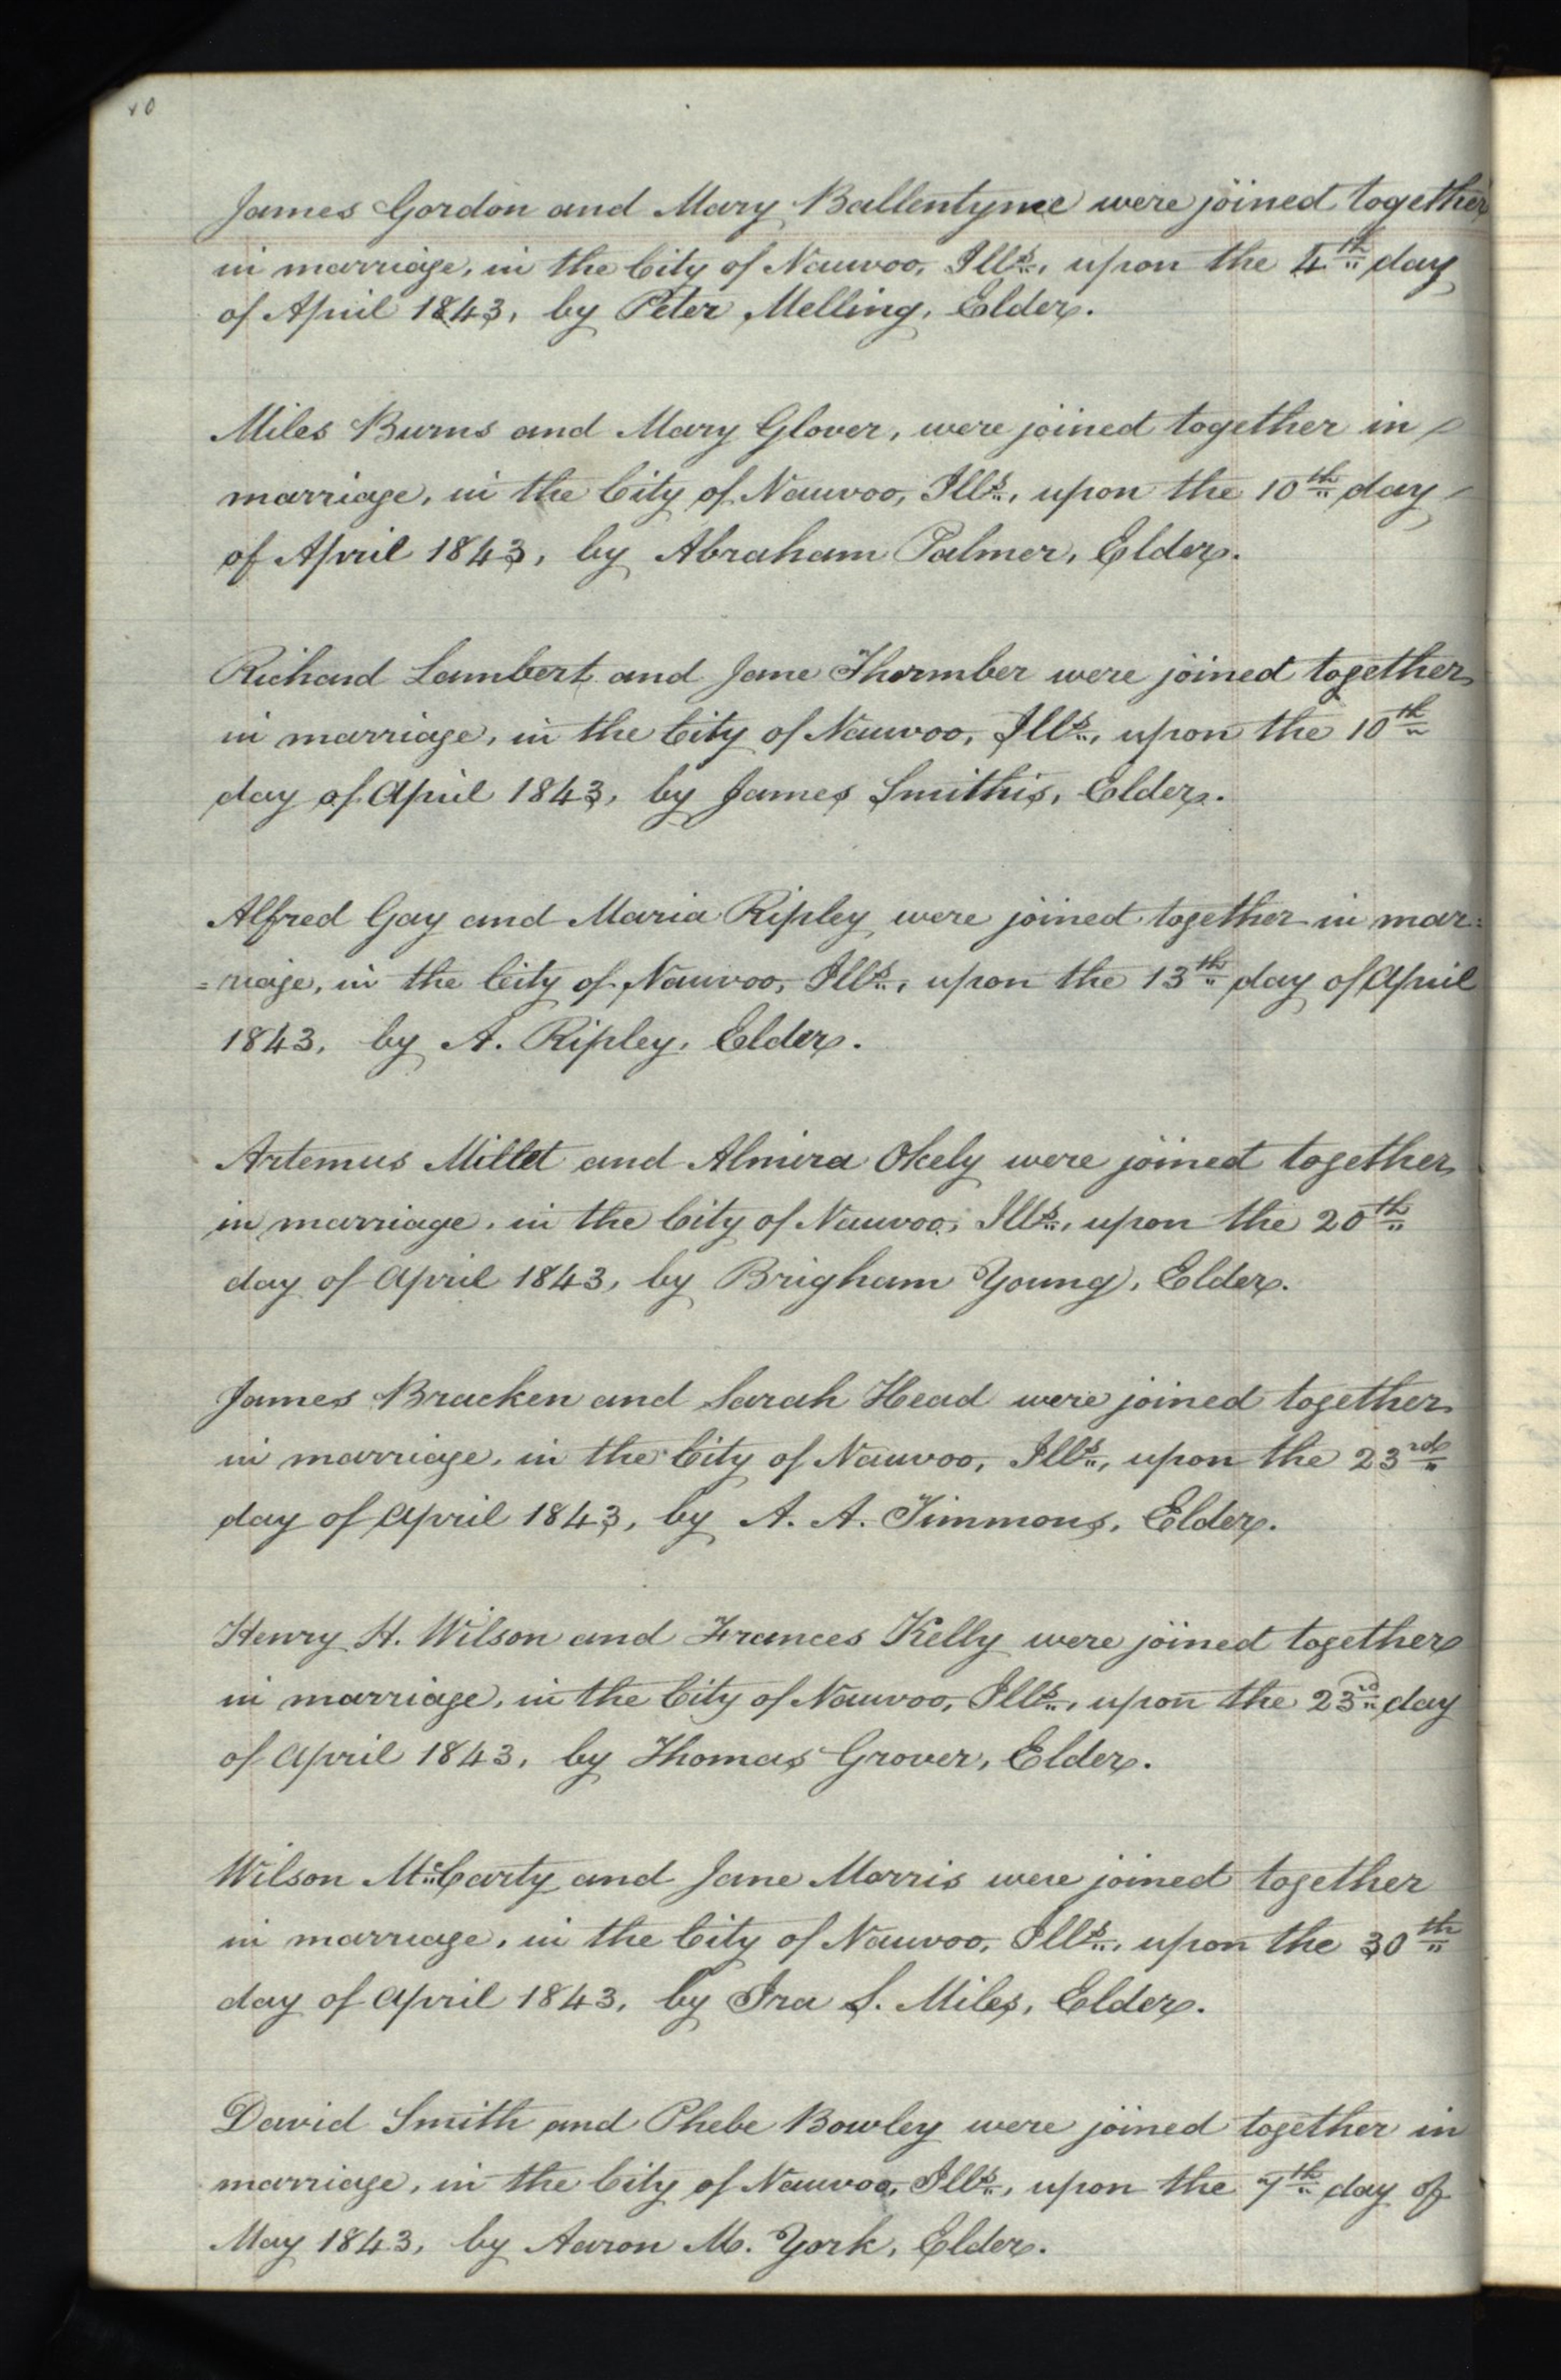 James Gordon and Mary Ballentyne were joined together
in marriage, in the City of Nauvoo, Ills., upon the 4th day
of April 1843, by Peter Melling, Elder.
Miles Burns and Mary Glover, were joined together in
marriage, in the City of Nauvoo, Ills., upon the 10th day
of April 1843, by Abraham Palmer, Elder.
Richard Lambert and Jane Thormber were joined together
in marriage, in the City of Nauvoo, Ills., upon the 10th
day of April 1843, by James Smithis, Elder.
Alfred Gay and Maria Ripley were joined together in mar=
=riage, in the City of Nauvoo, Ills., upon the 13th day of April
1843, by A. Ripley, Elder.
Artemus Millet and Almira Okely were joined together
in marriage, in the City of Nauvoo, Ills., upon the 20th
day of April 1843, by Brigham Young, Elder.
James Bracken and Sarah Head were joined together
in marriage, in the City of Nauvoo, Ills., upon the 23rd
day of April 1843, by A. A. Timmons, Elder.
Henry H. Wilson and Frances Kelly were joined together
in marriage, in the City of Nauvoo, Ills., upon the 23rd day
of April 1843, by Thomas Grover, Elder.
Wilson McCarty and Jane Morris were joined together
in marriage, in the City of Nauvoo, Ills., upon the 30th
day of April 1843, by Ira S. Miles, Elder.
David Smith and Phebe Bowley were joined together in
marriage, in the City of Nauvoo, Ills., upon the 7th day of
May 1843, by Aaron M. York, Elder.